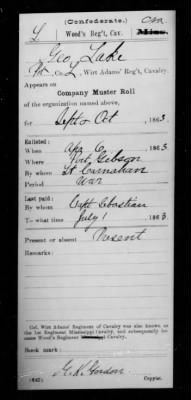 (Confederate.)
L Wood's Reg't, Cav. Miss. Con.
Geo Lake
Pvt., Co. L, Wirt Adams' Reg't, Cavalry.
Appears on
Company Muster Roll
of the organization named above,
for Sept & Oct, 1863
Enlisted:
When Apr 6, 1863
Where Port Gibson
By whom Lt Carnahan
Period War
Last paid:
By whom Capt Sebastian
To what time July 1, 1863
Present or absent Present
Remarks:
Col. Wirt Adams' Regiment of Cavalry was also known as
the 1st Regiment Mississippi Cavalry, and subsequently became
Wood's Regiment Cavalry.
Book mark:
(642) Copyist.